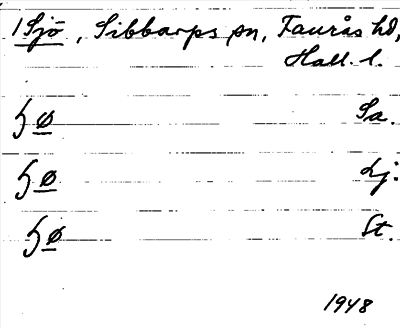 1 Sjö, Sibbarps sn, Faurås hd,
Hall. l.
ꜧø Sa.
ꜧø Lj.
ꜧø St.
1948